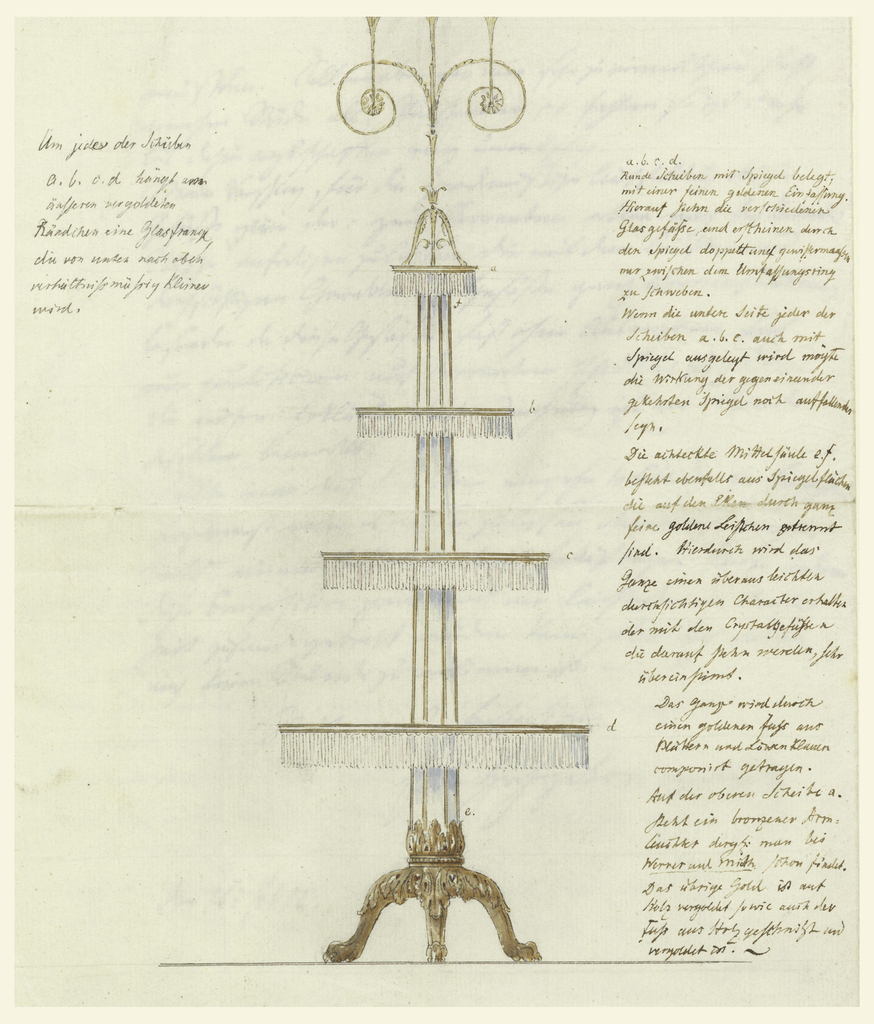 Um jede der Scheiben
a. b. c. d hängt am
äusseren vergoldeten
Rändchen eine Glasfranze,
die von unten nach oben
verhältnissmässig kleiner
wird.
a
f
b
c
d
e.
a. b. c. d.
Runde Scheiben mit Spiegel belegt,
mit einer feinen goldenen Einfassung.
Hierauf stehn die verschiedenen
Glasgefässe, und erscheinen durch
den Spiegel doppelt und gewissermaassen
nur zwischen dem Umfassungsring
zu schweben.
Wenn die untere Seite jeder der
Scheiben a. b. c. auch mit
Spiegel ausgelegt wird möchte
die Wirkung der gegeneinander
gekehrten Spiegel noch auffallender
seyn.
Die achteckte Mittelsäule e.f.
besteht ebenfalls aus Spiegelflächen
die auf den Eken durch ganz
feine goldene Leistchen getrennt
sind. Hierdurch wird das
Ganze einen überaus leichten
durchsichtigen Character erhalten
der mit den Crystallgefässen
die darauf stehn werden, sehr
übereinstimt.
Das Ganze wird durch
einen goldenen Fuss aus
Blättern und Löwenklauen
componirt getragen.
Auf der oberen Scheibe a.
steht ein bronzener Arm-
leuchter dergl: man bei
Werner und Mieth schon findet.
Das übrige Gold ist auf
Holz vergoldet sowie auch der
Fuss aus Holz geschnitzt und
vergoldet ist.